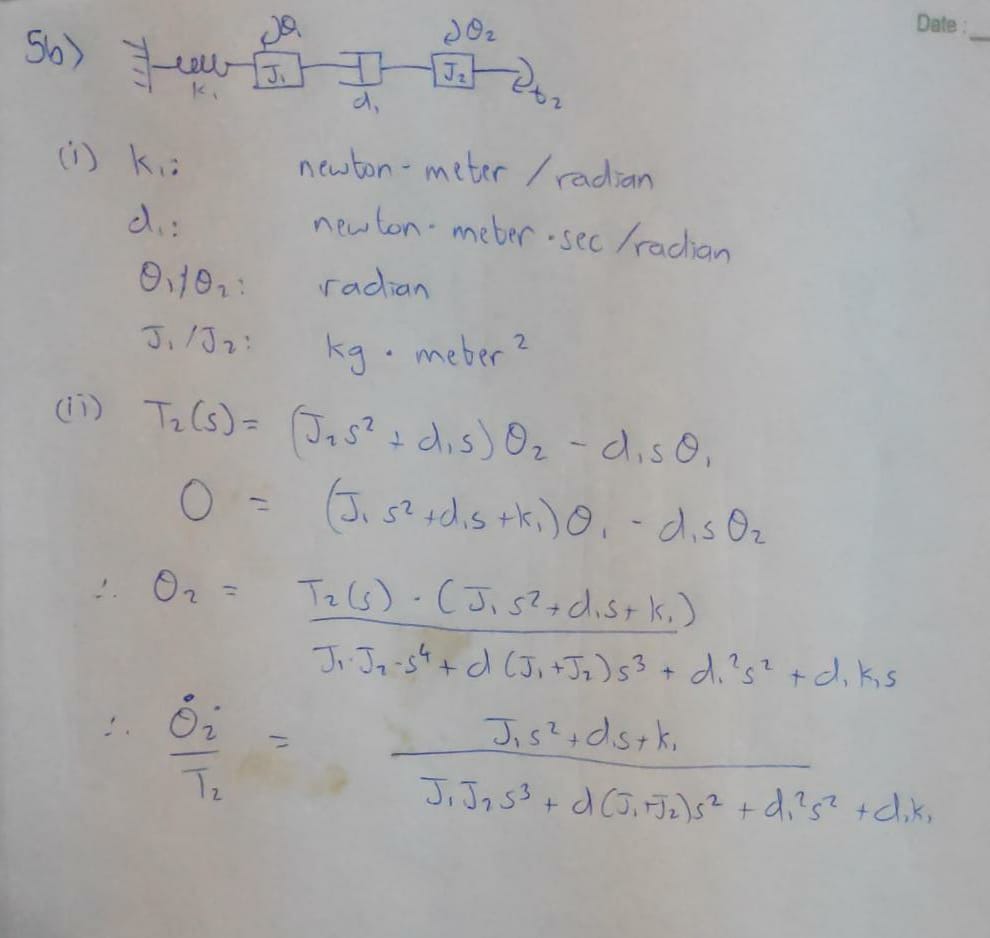 Date :
5b)
θ₁ θ₂
J₁ J₂
k₁ d₁ t₂
(i) k₁: newton - meter / radian
d₁: newton - meter · sec / radian
θ₁/θ₂: radian
J₁/J₂: kg · meter²
(ii) T₂(s) = (J₂s² + d₁s)θ₂ - d₁sθ₁
0 = (J₁s² + d₁s + k₁)θ₁ - d₁sθ₂
∴ θ₂ = T₂(s) · (J₁s² + d₁s + k₁)
J₁·J₂·s⁴ + d(J₁+J₂)s³ + d₁²s² + d₁k₁s
∴ θ̇₂ / T₂ = J₁s² + d₁s + k₁
J₁J₂s³ + d(J₁+J₂)s² + d₁²s² + d₁k₁